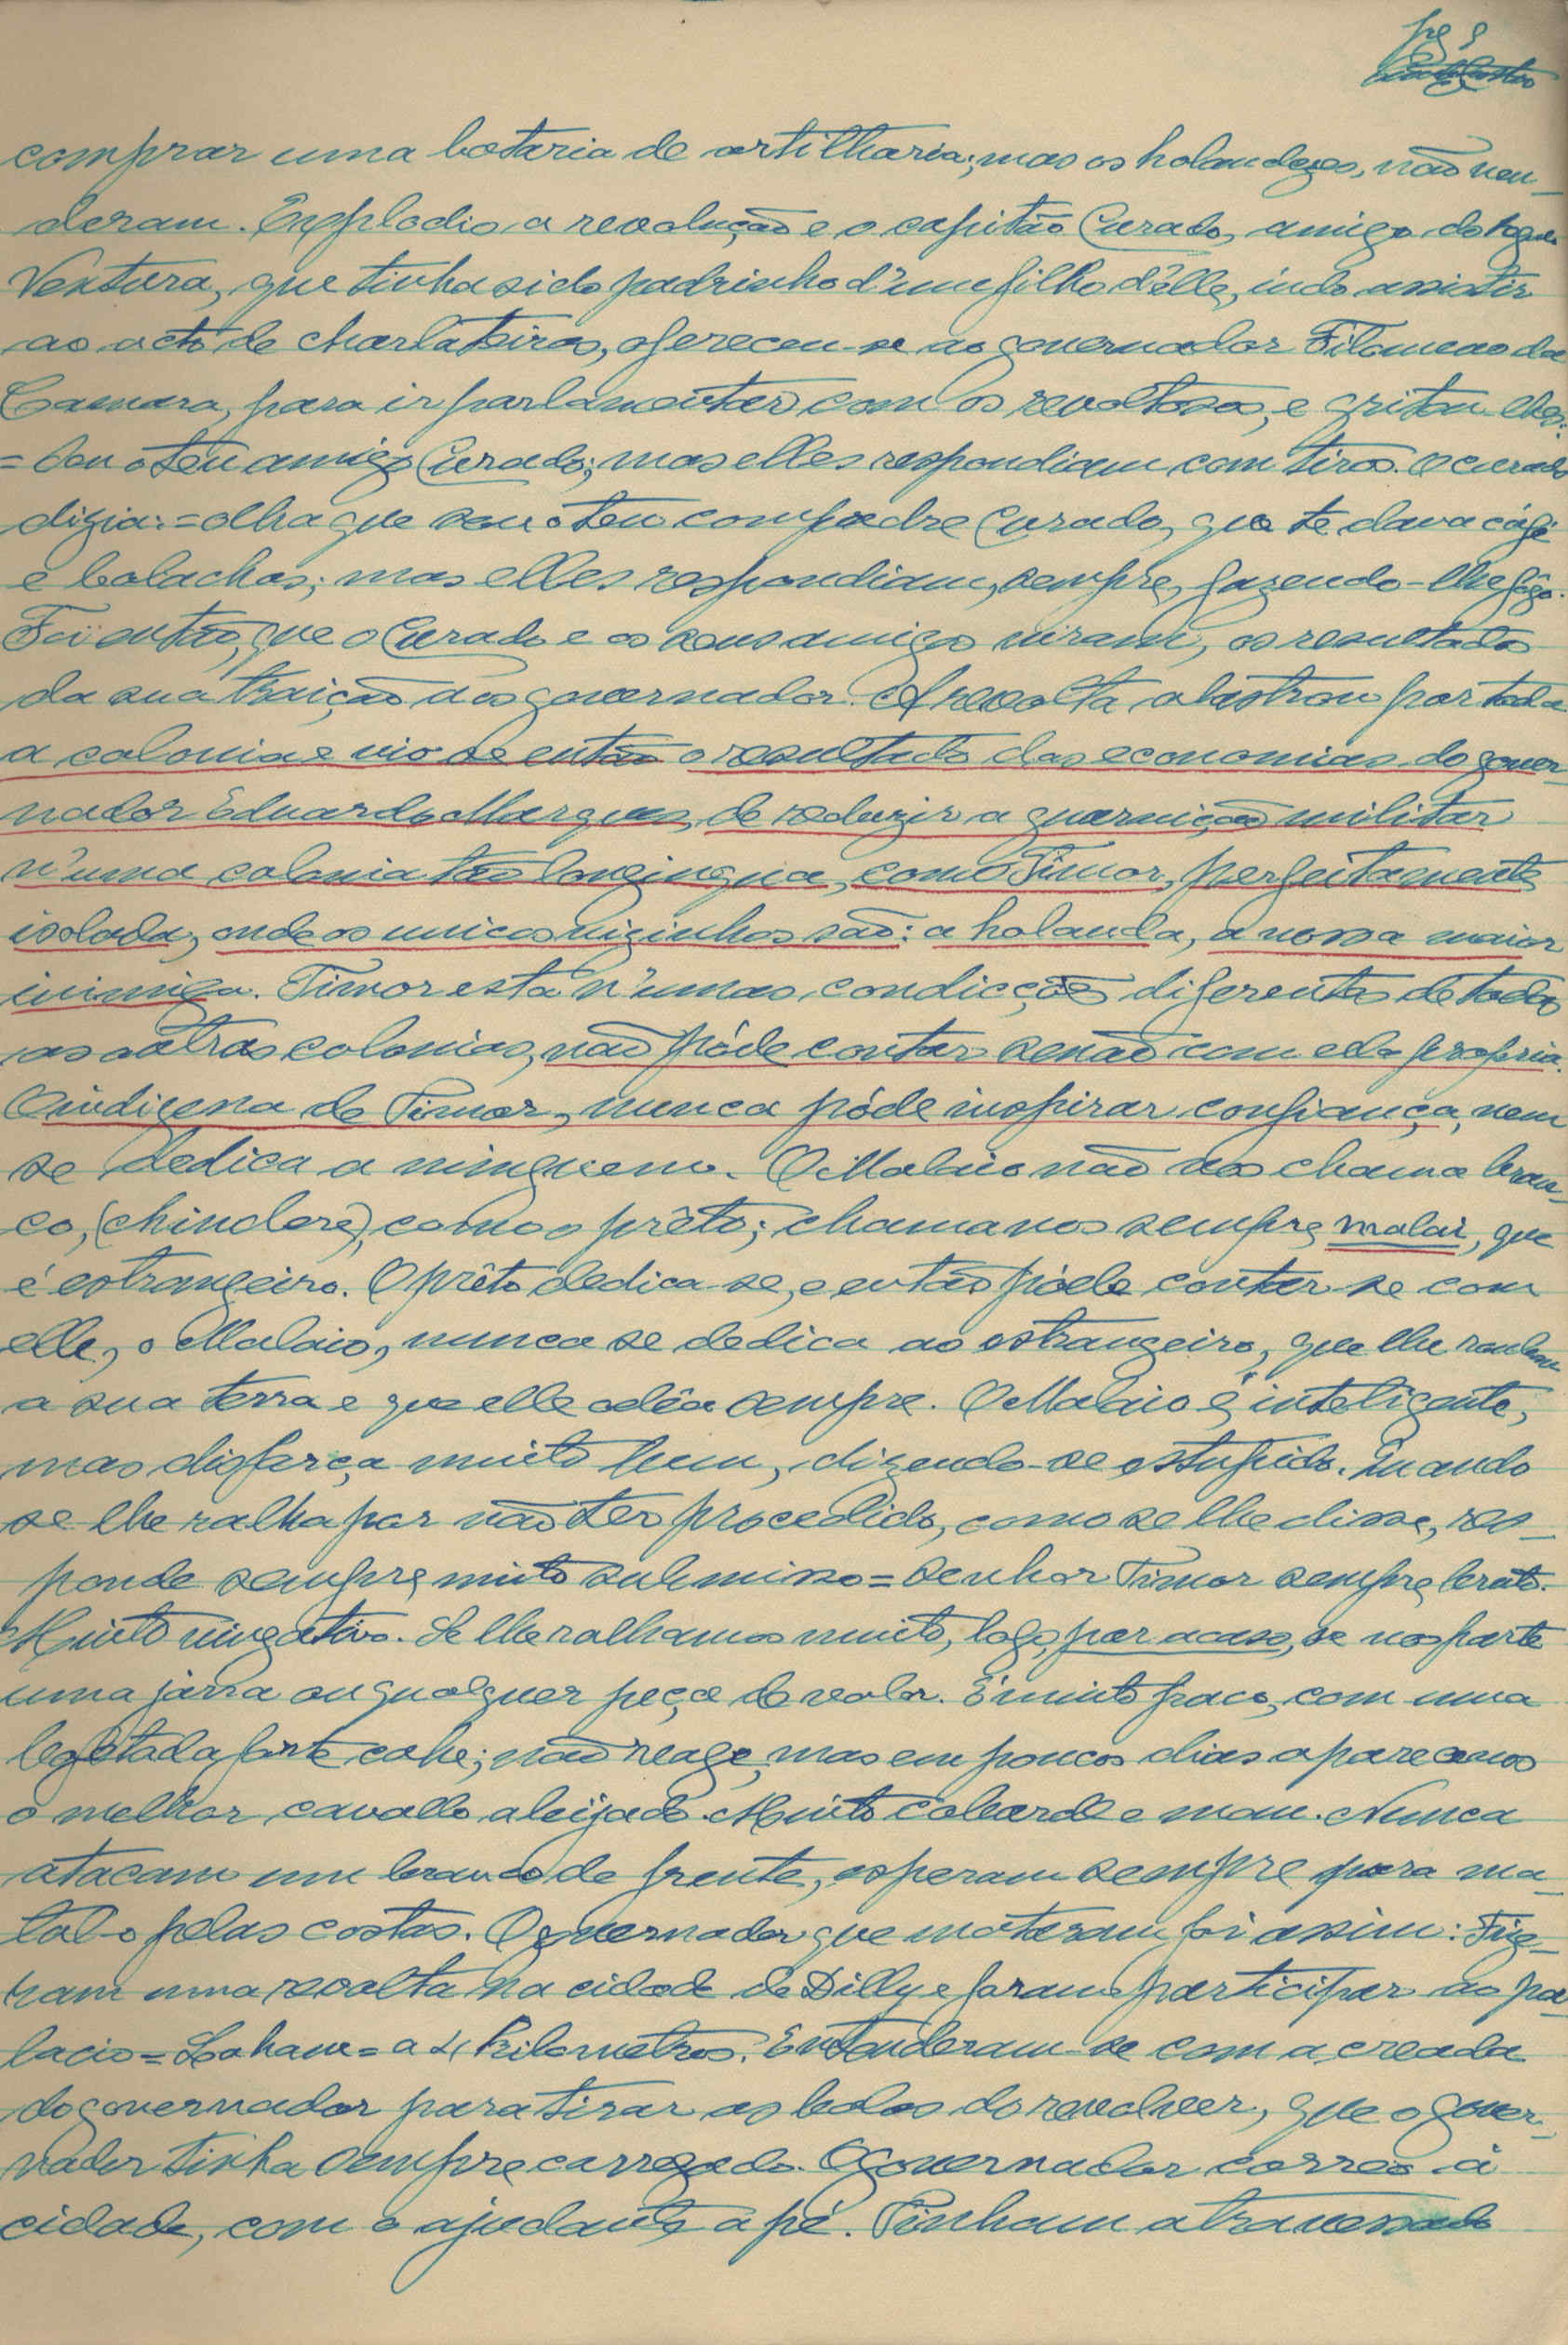 pg 9
comprar uma bataria de artilharia; mas os holandezes, não ven-
deram. Explodio a revolução e o capitão Curado, amigo do
Ventura, que tinha sido padrinho d'um filho d'êlle, indo assistir
ao acto de charlateiras, ofereceu-se ao governador Filomeno da
Camara, para ir parlamentar com os revoltosos, e gritou-lhes:
= sou o teu amigo Curado; mas elles respondiam com tiros. O Curado
dizia: = olha que sou o teu compadre Curado, que te dava café
e bolachas; mas elles respondiam, sempre, fazendo-lhe fôgo.
Foi então, que o Curado e os seus amigos viram, os resultados
da sua traição aos governador. A revolta alastrou por toda
a colonia e vio-se então o resultado das economias do gover-
nador Eduardo Marques, de reduzir a guarnição militar
n'uma colonia tão longinqua, como Timor, perfeitamente
isolada, onde os unicos vizinhos são: a holanda, a nossa maior
inimiga. Timor está n'umas condicções diferentes de todas
as outras colonias, não póde contar senão com ela propria.
O indigena de Timor, nunca póde inspirar confiança, nem
se dedica a ninguem. O Malaio não nos chama bran-
co, (chindere), como o prêto; chama nos sempre malai, que
é estrangeiro. O prêto dedica-se, e então póde contar-se com
elle, o Malaio, nunca se dedica ao estrangeiro, que lhe roubou
a sua terra e que elle odêia sempre. O Malaio é inteligente,
mas disfarça muito bem, dizendo-se estupido. Quando
se lhe ralha por não ter procedido, como se lhe disse, res-
ponde sempre, muito submisso = Senhor Timor sempre bruto.
Muito vingativo. Se lhe ralhamos muito, logo, por acaso, se nos parte
uma jarra ou qualquer peça de valor. É muito fraco, com uma
bofetada forte cahe; não reage, mas em poucos dias aparece-nos
o melhor cavallo aleijado. Muito cobarde e mau. Nunca
atacam um branco de frente, esperam sempre para ma-
tal-o pelas costas. O governador que mataram foi assim: Fize-
ram uma revolta na cidade de Dilly e foram participar ao pa-
lacio = Lahane = a 4 kilometros. Entenderam-se com a creada
do governador para tirar as balas do revolver, que o gover-
nador tinha sempre carregado. O governador correo á
cidade, com o ajudante a pé. Tinham atravessado